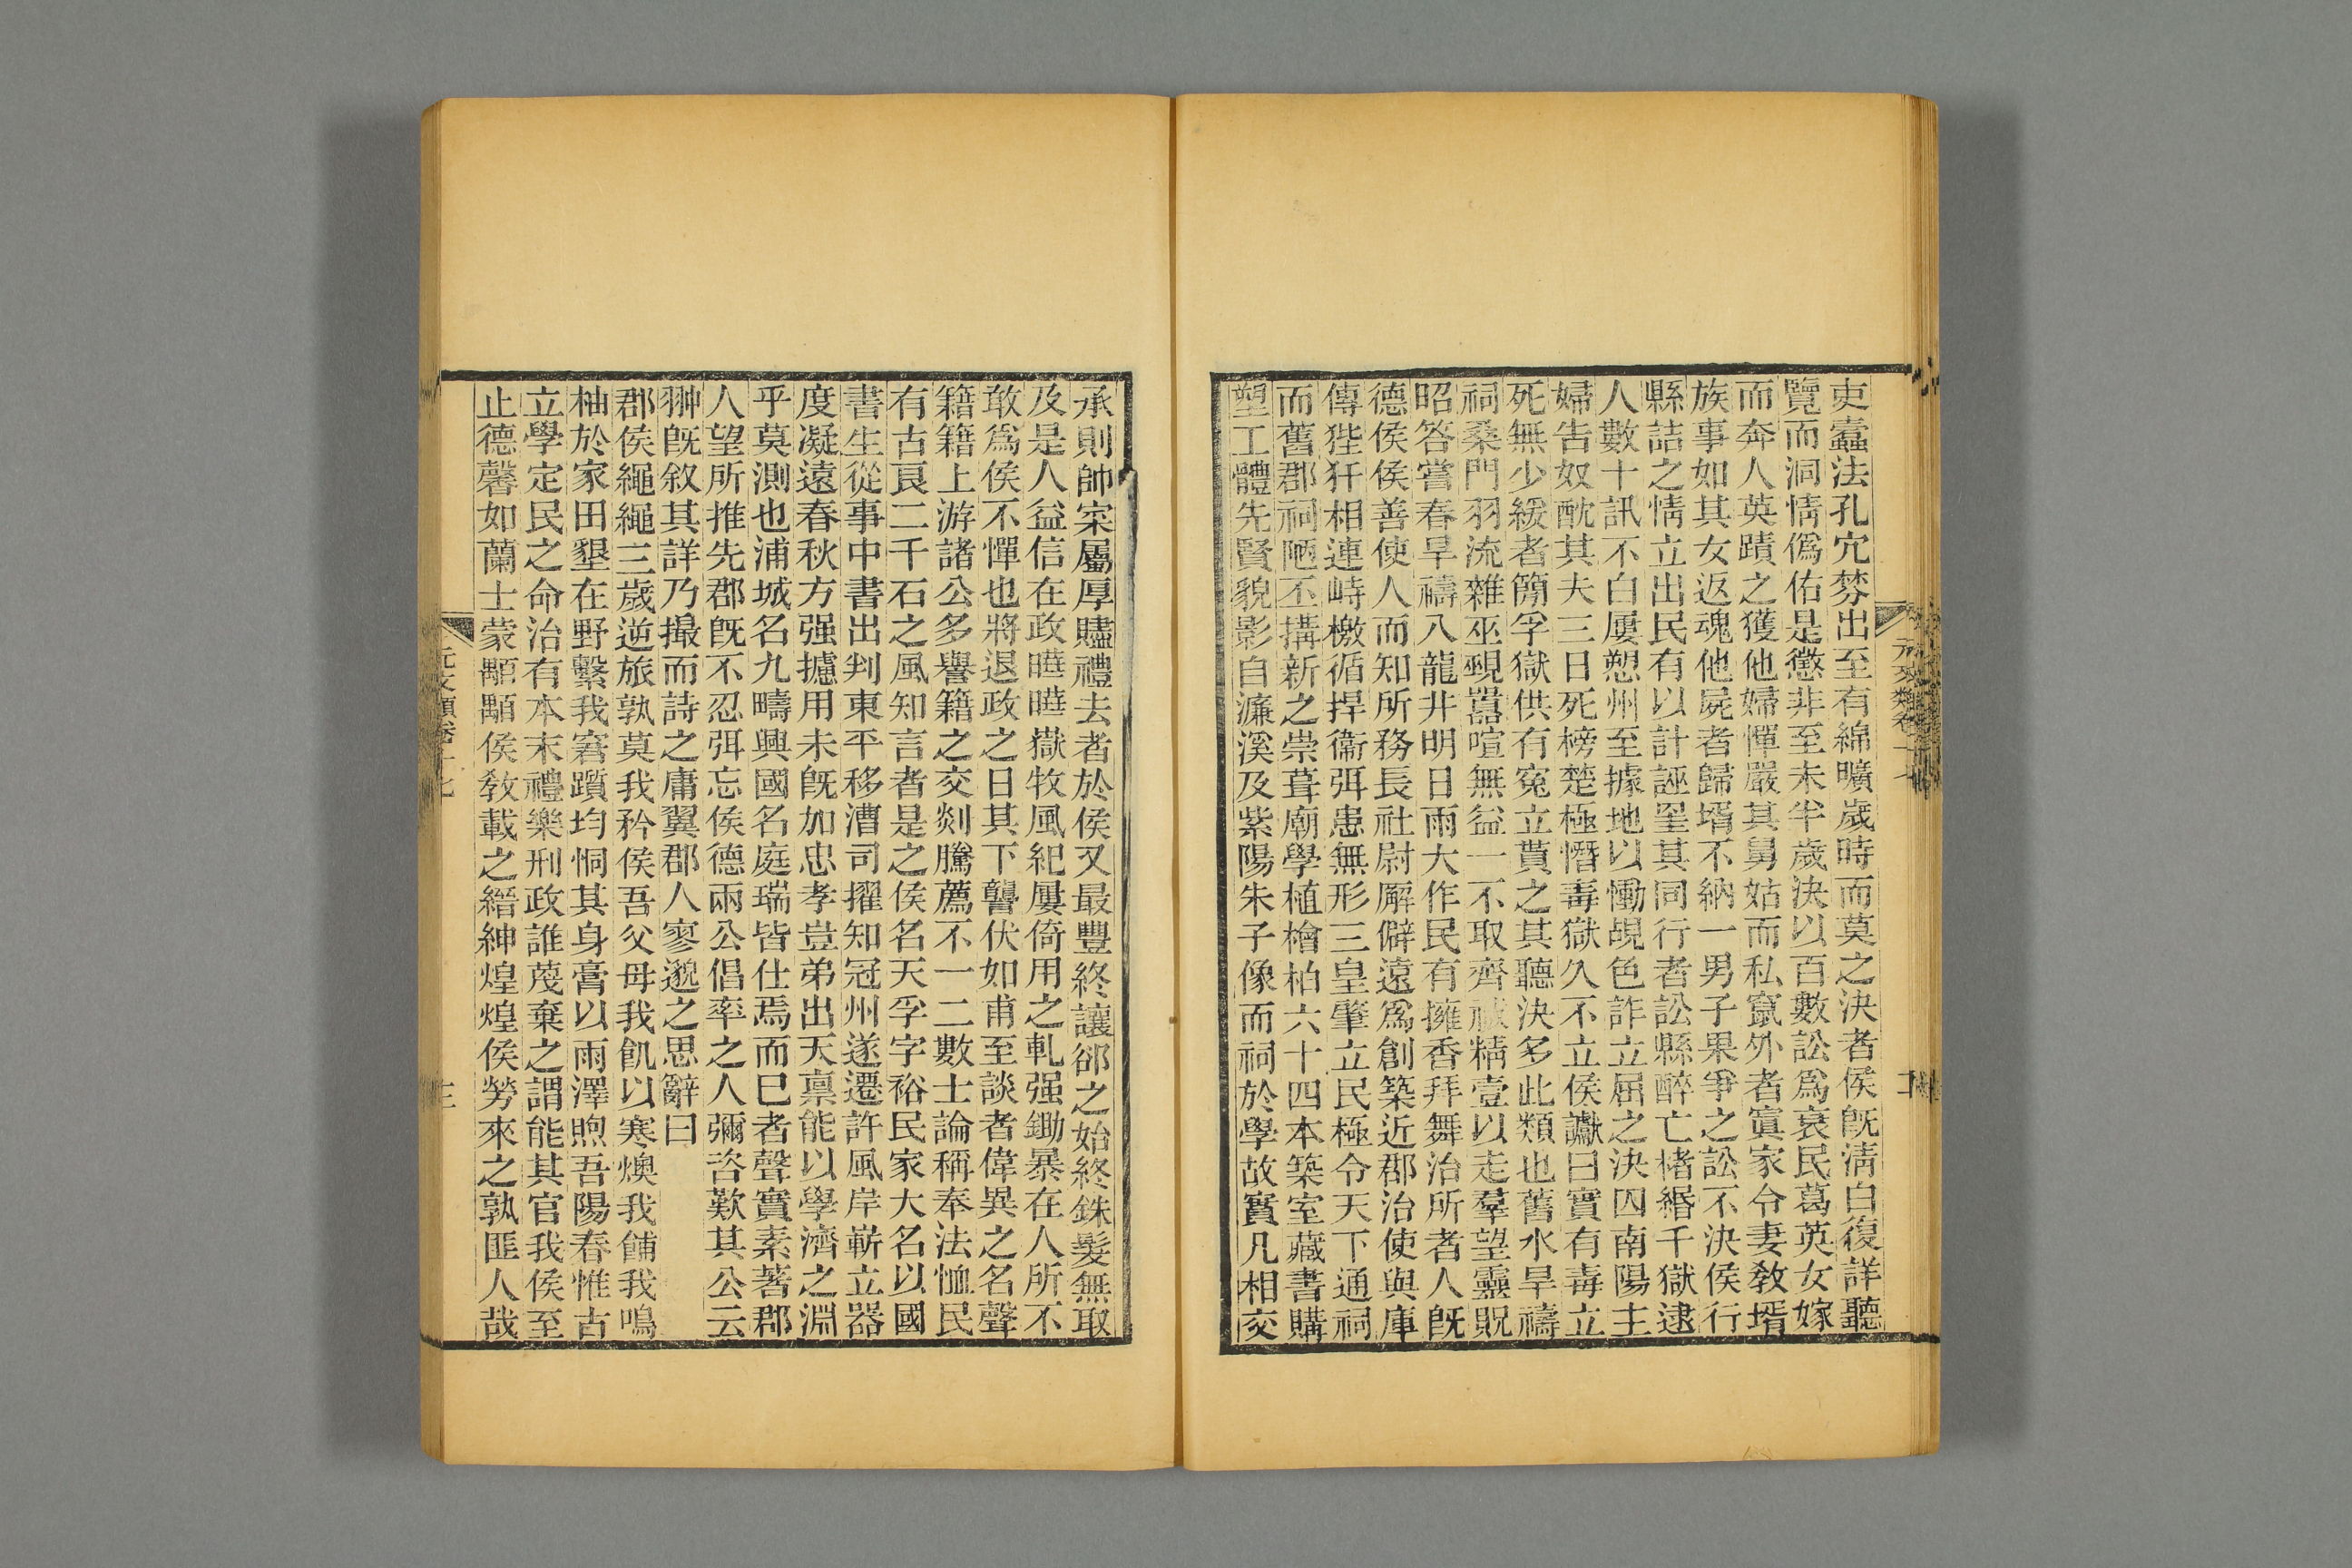 吏蠹法孔穴棼出至有綿曠歲時而莫之決者侯旣淸白復詳聽
覽而洞情僞佑是懲非至未半歲決以百數訟爲衰民葛英女嫁
而奔人英蹟之獲他婦憚嚴其舅姑而私竄外者寘家令妻敎壻
族事如其女返魂他屍者歸壻不納一男子果爭之訟不決侯行
縣詰之情立出民有以計誣罣其同行者訟縣醉亡楮緡千獄逮
人數十訊不白屢愬州至據地以慟覘色詐立屈之決四南陽主
婦吿奴酖其夫三日死榜楚極憯毒獄久不立侯讞曰實有毒立
死無少緩者簡孚獄供有寃立貰之其聽決多此類也舊水旱禱
祠桑門羽流雜巫覡囂喧無益一不取齊祓精壹以走羣望靈貺
昭答嘗春旱禱八龍井明日雨大作民有擁香拜舞治所者人旣
德侯侯善使人而知所務長社尉廨僻遠爲創築近郡治使與庫
傳狴犴相連峙檄循捍衞弭患無形三皇肇立民極令天下通祠
而舊郡祠陋丕搆新之崇葺廟學植檜柏六十四本築室藏書購
塑工體先賢貌影自濂溪及紫陽朱子像而祠於學故實凡相交
承則帥寀屬厚贐禮去者於侯又最豐終讓郤之始終銖髮無取
及是人益信在政曉曉嶽牧風紀屢倚用之軋强鋤暴在人所不
敢爲侯不憚也將退政之日其下讋伏如甫至談者偉異之名聲
籍籍上游諸公多譽籍之交剡騰薦不一二數士論稱奉法恤民
有古良二千石之風知言者是之侯名天孚字裕民家大名以國
書生從事中書出判東平移漕司擢知冠州遂遷許風岸嶄立器
度凝遠春秋方强攄用未旣加忠孝豈弟出天稟能以學濟之淵
乎莫測也浦城名九疇興國名庭瑞皆仕焉而已者聲實素著郡
人望所推先郡旣不忍弭忘侯德兩公倡率之人彌咨歎其公云
翀旣敘其詳乃撮而詩之庸翼郡人寥邈之思辭曰
郡侯繩繩三歲逆旅孰莫我矜侯吾父母我飢以寒燠我餔我鳴
柚於家田墾在野繄我窘躓均恫其身膏以雨澤煦吾陽春惟古
立學定民之命治有本末禮樂刑政誰蔑棄之謂能其官我侯至
止德馨如蘭士蒙顒顒侯敎載之縉紳煌煌侯勞來之孰匪人哉